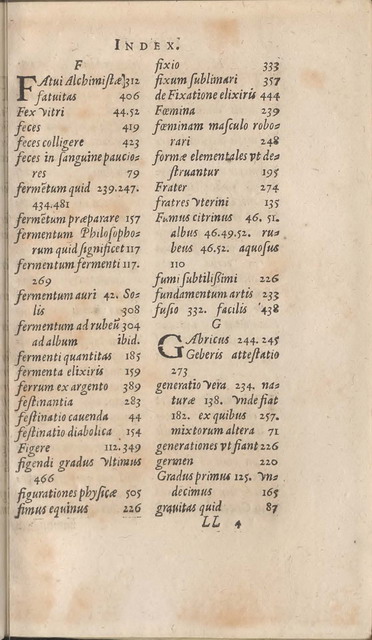 INDEX.
F
FAtui Alchimistæ 312
fatuitas 406
Fex vitri 44.52
feces 419
feces colligere 423
feces in sanguine paucio-
res 79
fermētum quid 239.247.
434.481
fermētum præparare 157
fermentum Philosopho-
rum quid significet 117
fermentum fermenti 117.
269
fermentum auri 42. So-
lis 308
fermentum ad rubeū 304
ad album ibid.
fermenti quantitas 185
fermenta elixiris 159
ferrum ex argento 389
festinantia 283
festinatio cauenda 44
festinatio diabolica 154
Figere 112.349
figendi gradus vltimus
466
figurationes physicæ 505
fimus equinus 226
fixio 333
fixum sublimari 357
de Fixatione elixiris 444
Fœmina 239
fœminam masculo robo-
rari 248
formæ elementales vt de-
struantur 195
Frater 274
fratres vterini 135
Fumus citrinus 46. 51.
albus 46.49.52. ru-
beus 46.52. aquosus
110
fumi subtilissimi 226
fundamentum artis 233
fusio 332. facilis 438
G
GAbricus 244.245
Geberis attestatio
273
generatio vera 234. na-
turæ 138. vnde fiat
182. ex quibus 257.
mixtorum altera 71
generationes vt fiant 226
germen 220
Gradus primus 125. vn-
decimus 165
grauitas quid 87
LL 4